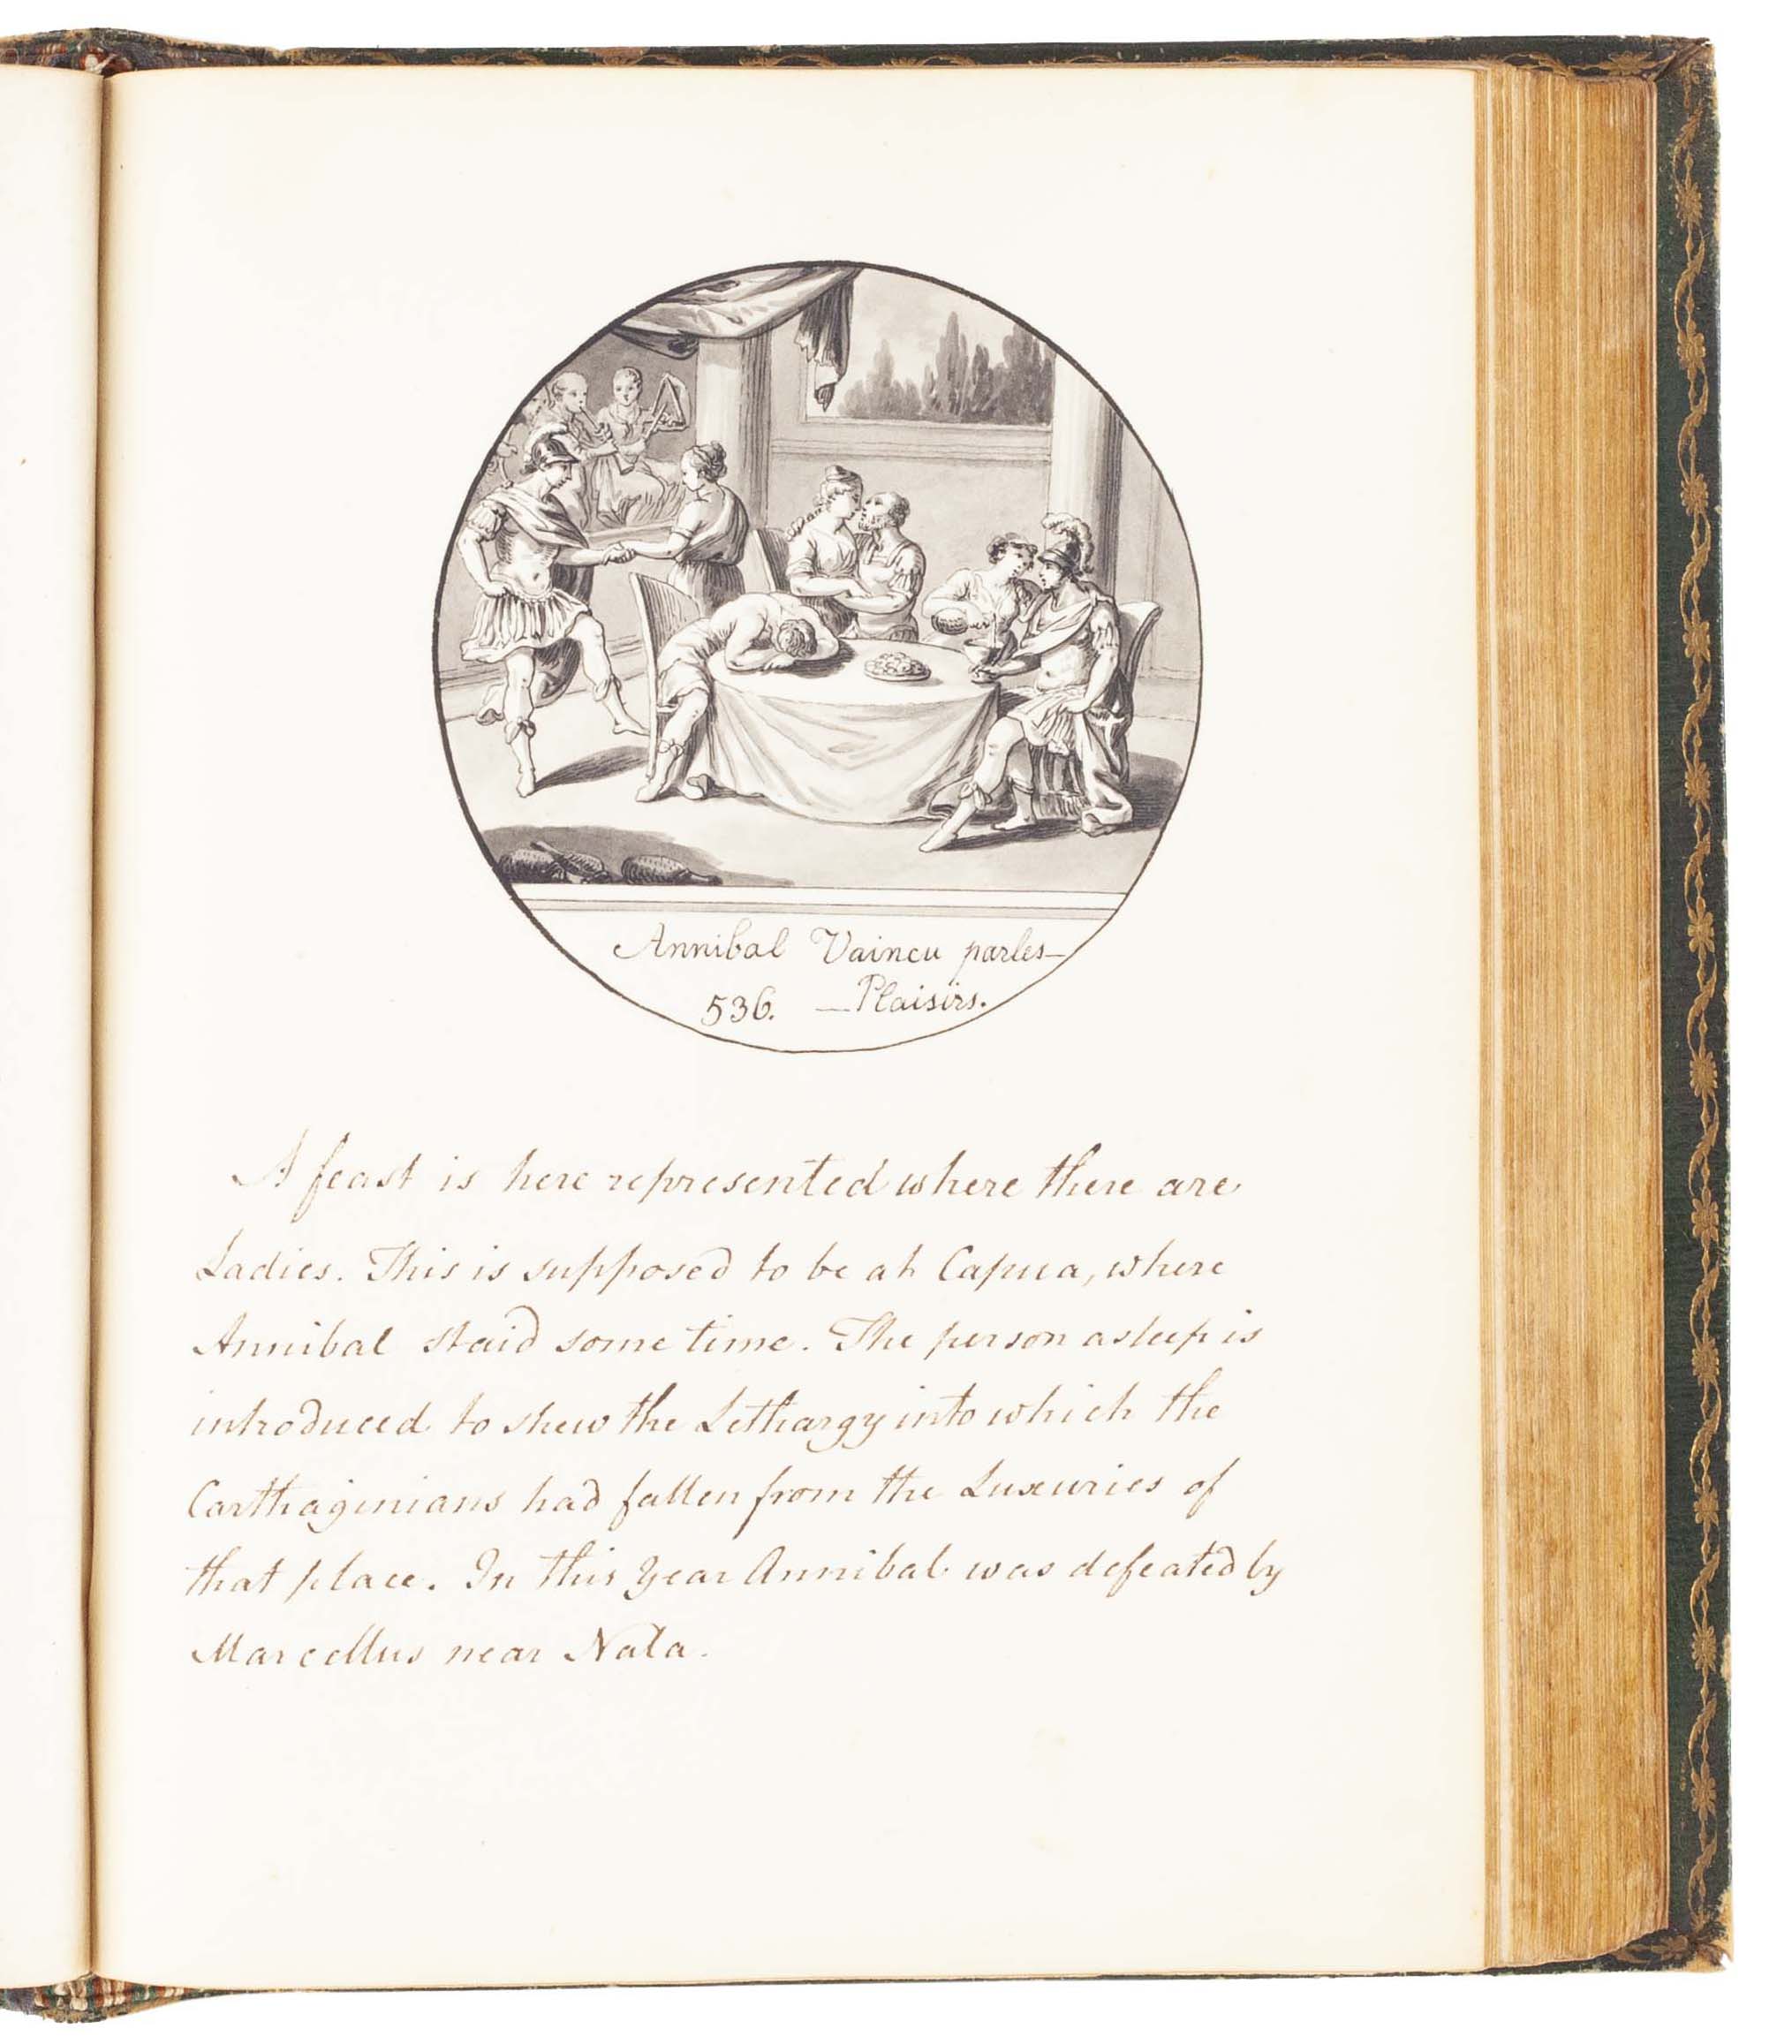 Annibal Vaincu parles—
536. —Plaisirs.
A feast is here represented where there are
Ladies. This is supposed to be at Capua, where
Annibal staid some time. The person asleep is
introduced to shew the Lethargy into which the
Carthaginians had fallen from the Luxuries of
that place. In this Year Annibal was defeated by
Marcellus near Nola.